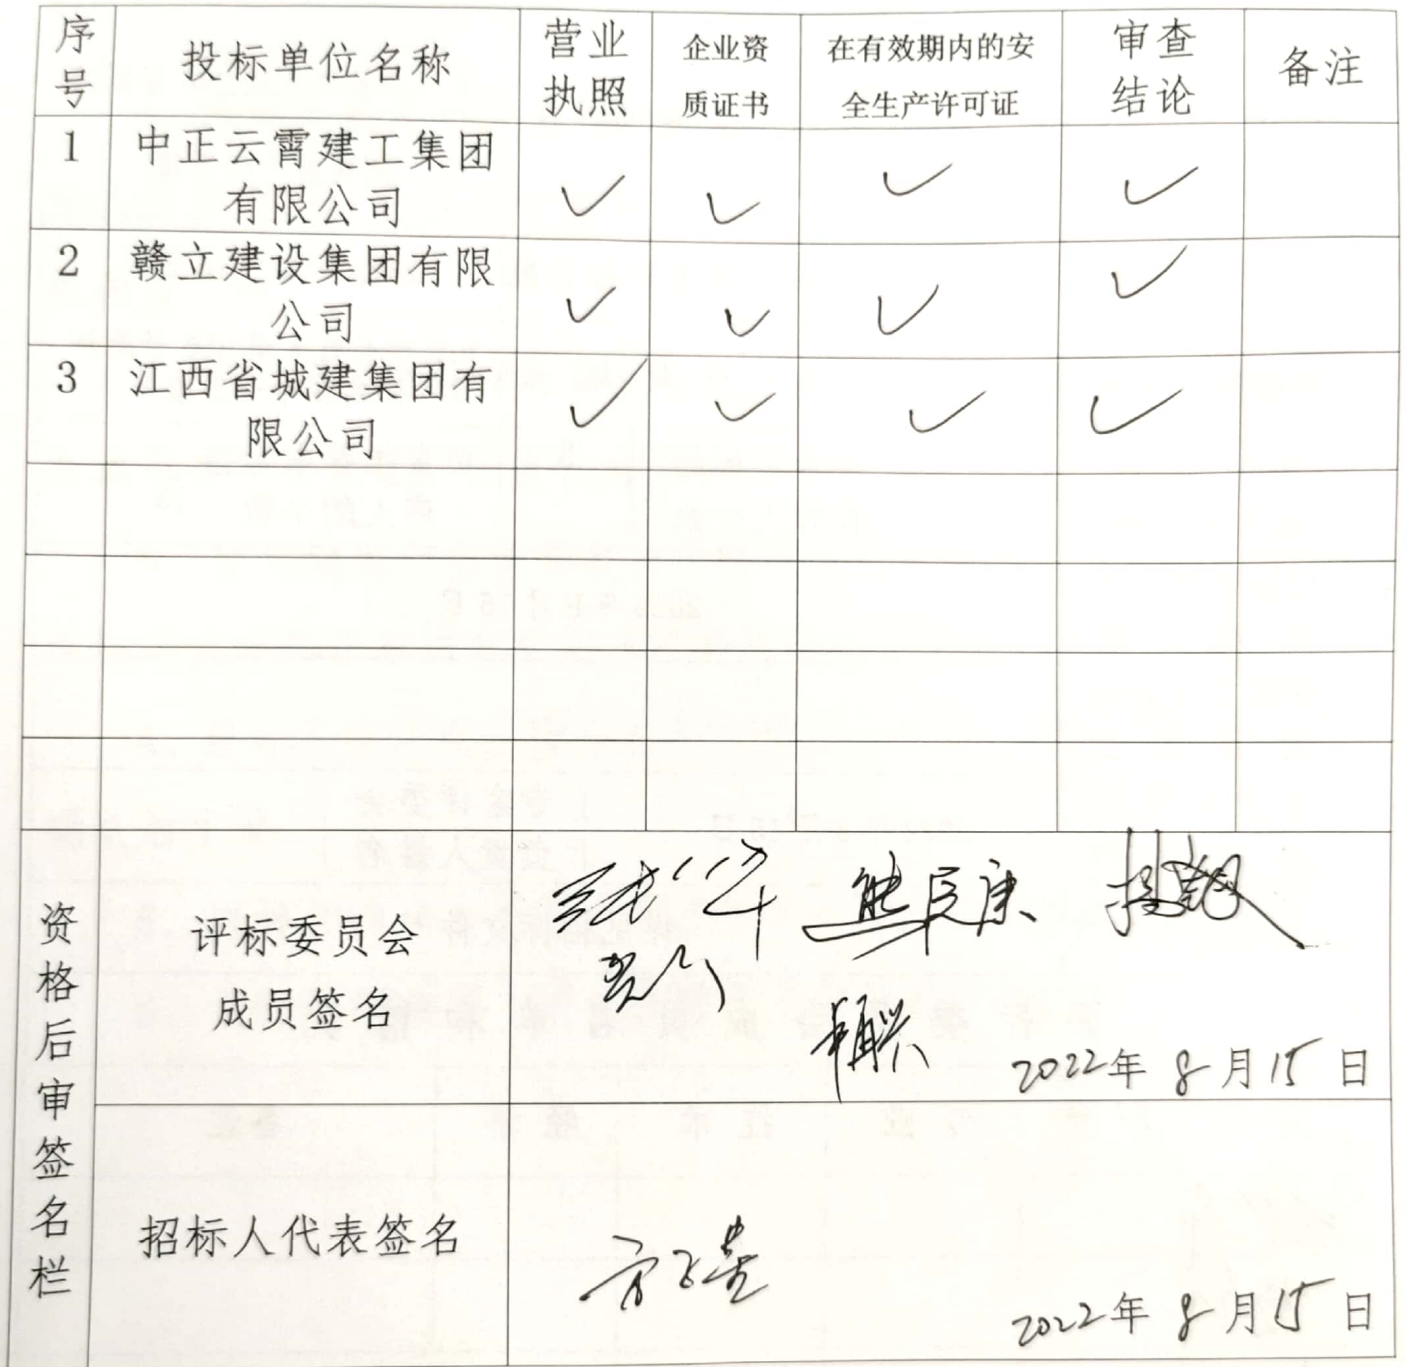 序号 投标单位名称 营业执照 企业资质证书 在有效期内的安全生产许可证 审查结论 备注
1 中正云霄建工集团有限公司 ✓ ✓ ✓ ✓
2 赣立建设集团有限公司 ✓ ✓ ✓ ✓
3 江西省城建集团有限公司 ✓ ✓ ✓ ✓
资格后审签名栏
评标委员会
成员签名
2022年 8月15日
招标人代表签名
2022年 8月15日